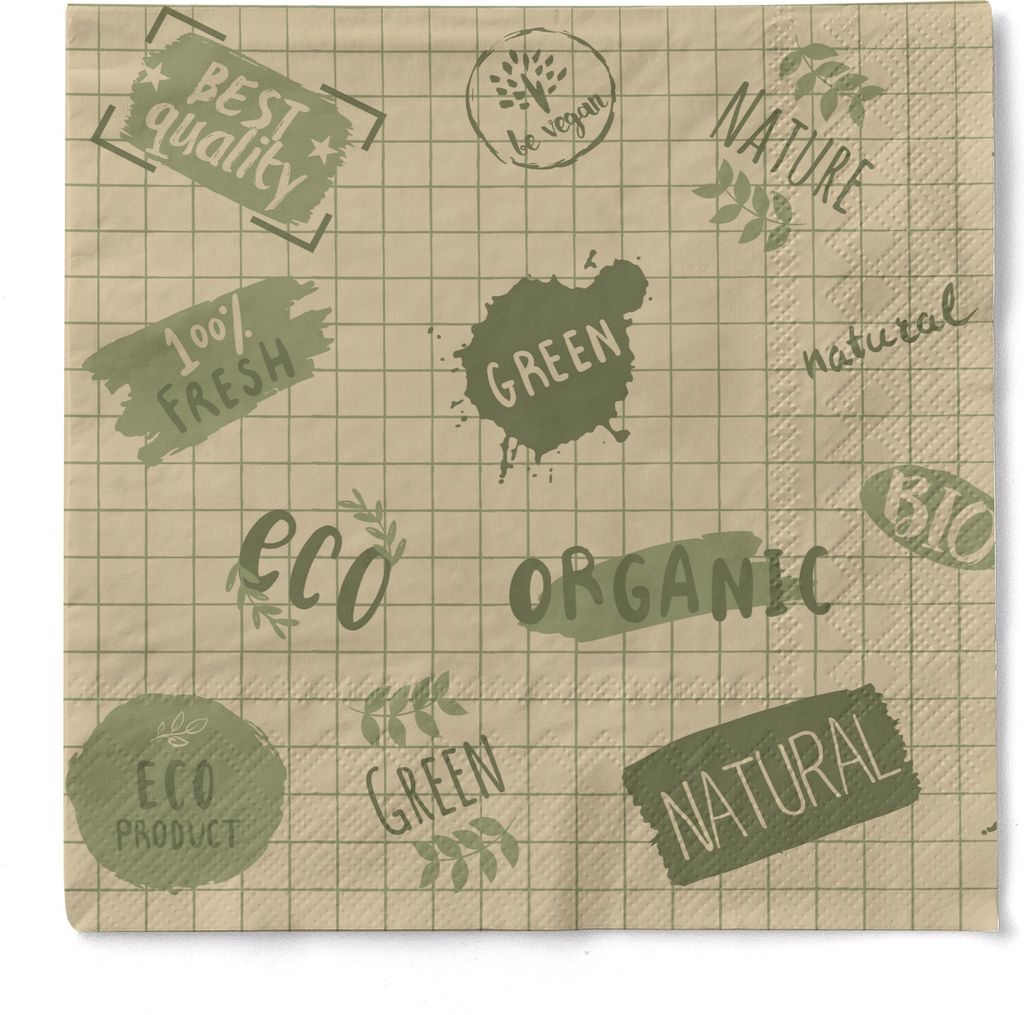 BEST
quality
be vegan
NATURE
100%
FRESH
GREEN
natural
eco
ORGANIC
BIO
ECO
PRODUCT
GREEN
NATURAL